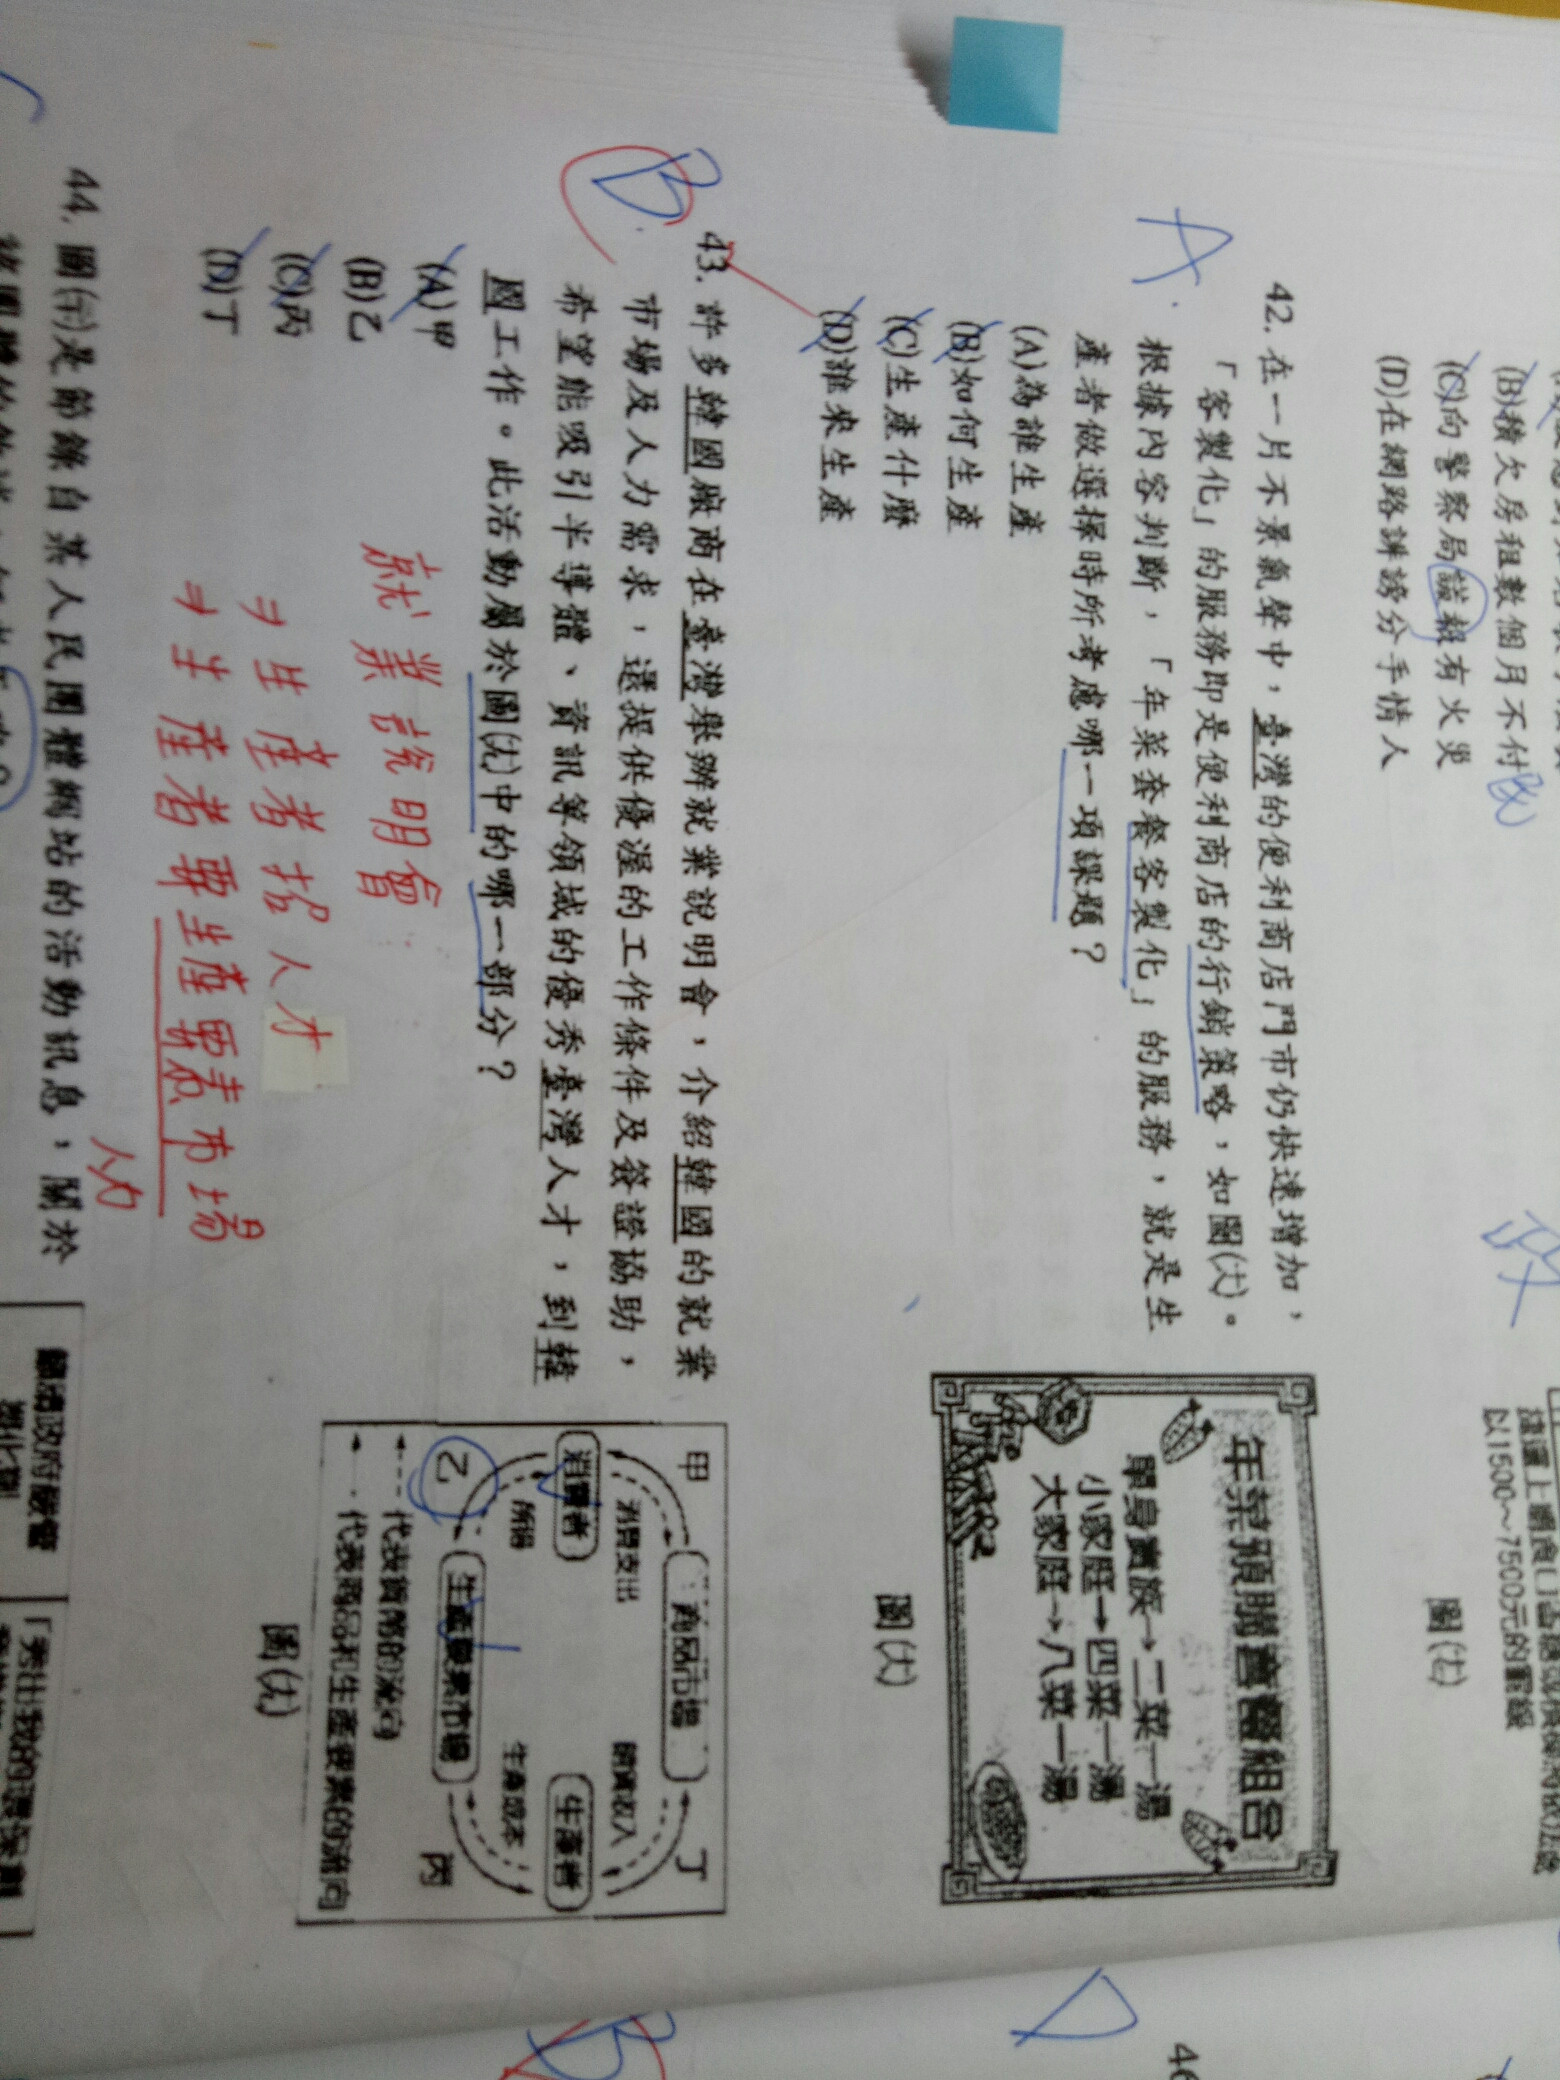 (B)積欠房租數個月不付
(C)向警察局謊報有火災
(D)在網路誹謗分手情人
政
捷運上飲食
以1500~7500元的罰鍰
圖(七)
A
42. 在一片不景氣聲中，臺灣的便利商店門市仍快速增加，
「客製化」的服務即是便利商店的行銷策略，如圖(大)。
根據內容判斷，「年菜套餐客製化」的服務，就是生
產者做選擇時所考慮哪一項課題？
(A)為誰生產
(B)如何生產
(C)生產什麼
(D)誰來生產
年菜預購套餐組合
單身貴族→二菜一湯
小家庭→四菜一湯
大家庭→八菜一湯
圖(大)
B
43. 許多韓國廠商在臺灣舉辦就業說明會，介紹韓國的就業
市場及人力需求，還提供優渥的工作條件及簽證協助，
希望能吸引半導體、資訊等領域的優秀臺灣人才，到韓
國工作。此活動屬於圖(尢)中的哪一部分？
(A)甲
(B)乙
(C)丙
(D)丁
就業說明會
⇒生產者招人才
⇒生產者要生產要素市場
人力
甲
商品市場
丁
消費支出
銷貨收入
消費者
生產者
所得
生產成本
乙
生產要素市場
丙
代表貨幣的流向
代表商品和生產要素的流向
圖(尢)
44. 圖(ㄗ)是節錄自某人民團體網站的活動訊息，關於
D
46
B